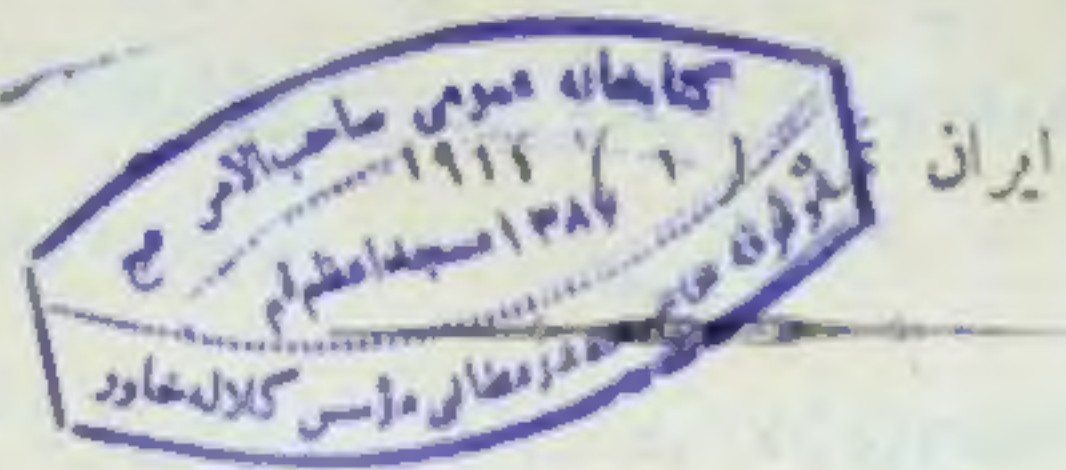 ایران
کتابخانه عمومی صاحب الامر عج
( ۱ ) ۱۹۱۲
۱۳۸۷ مسجد اعظم قم
رمضانی مؤسس کلاله خاور